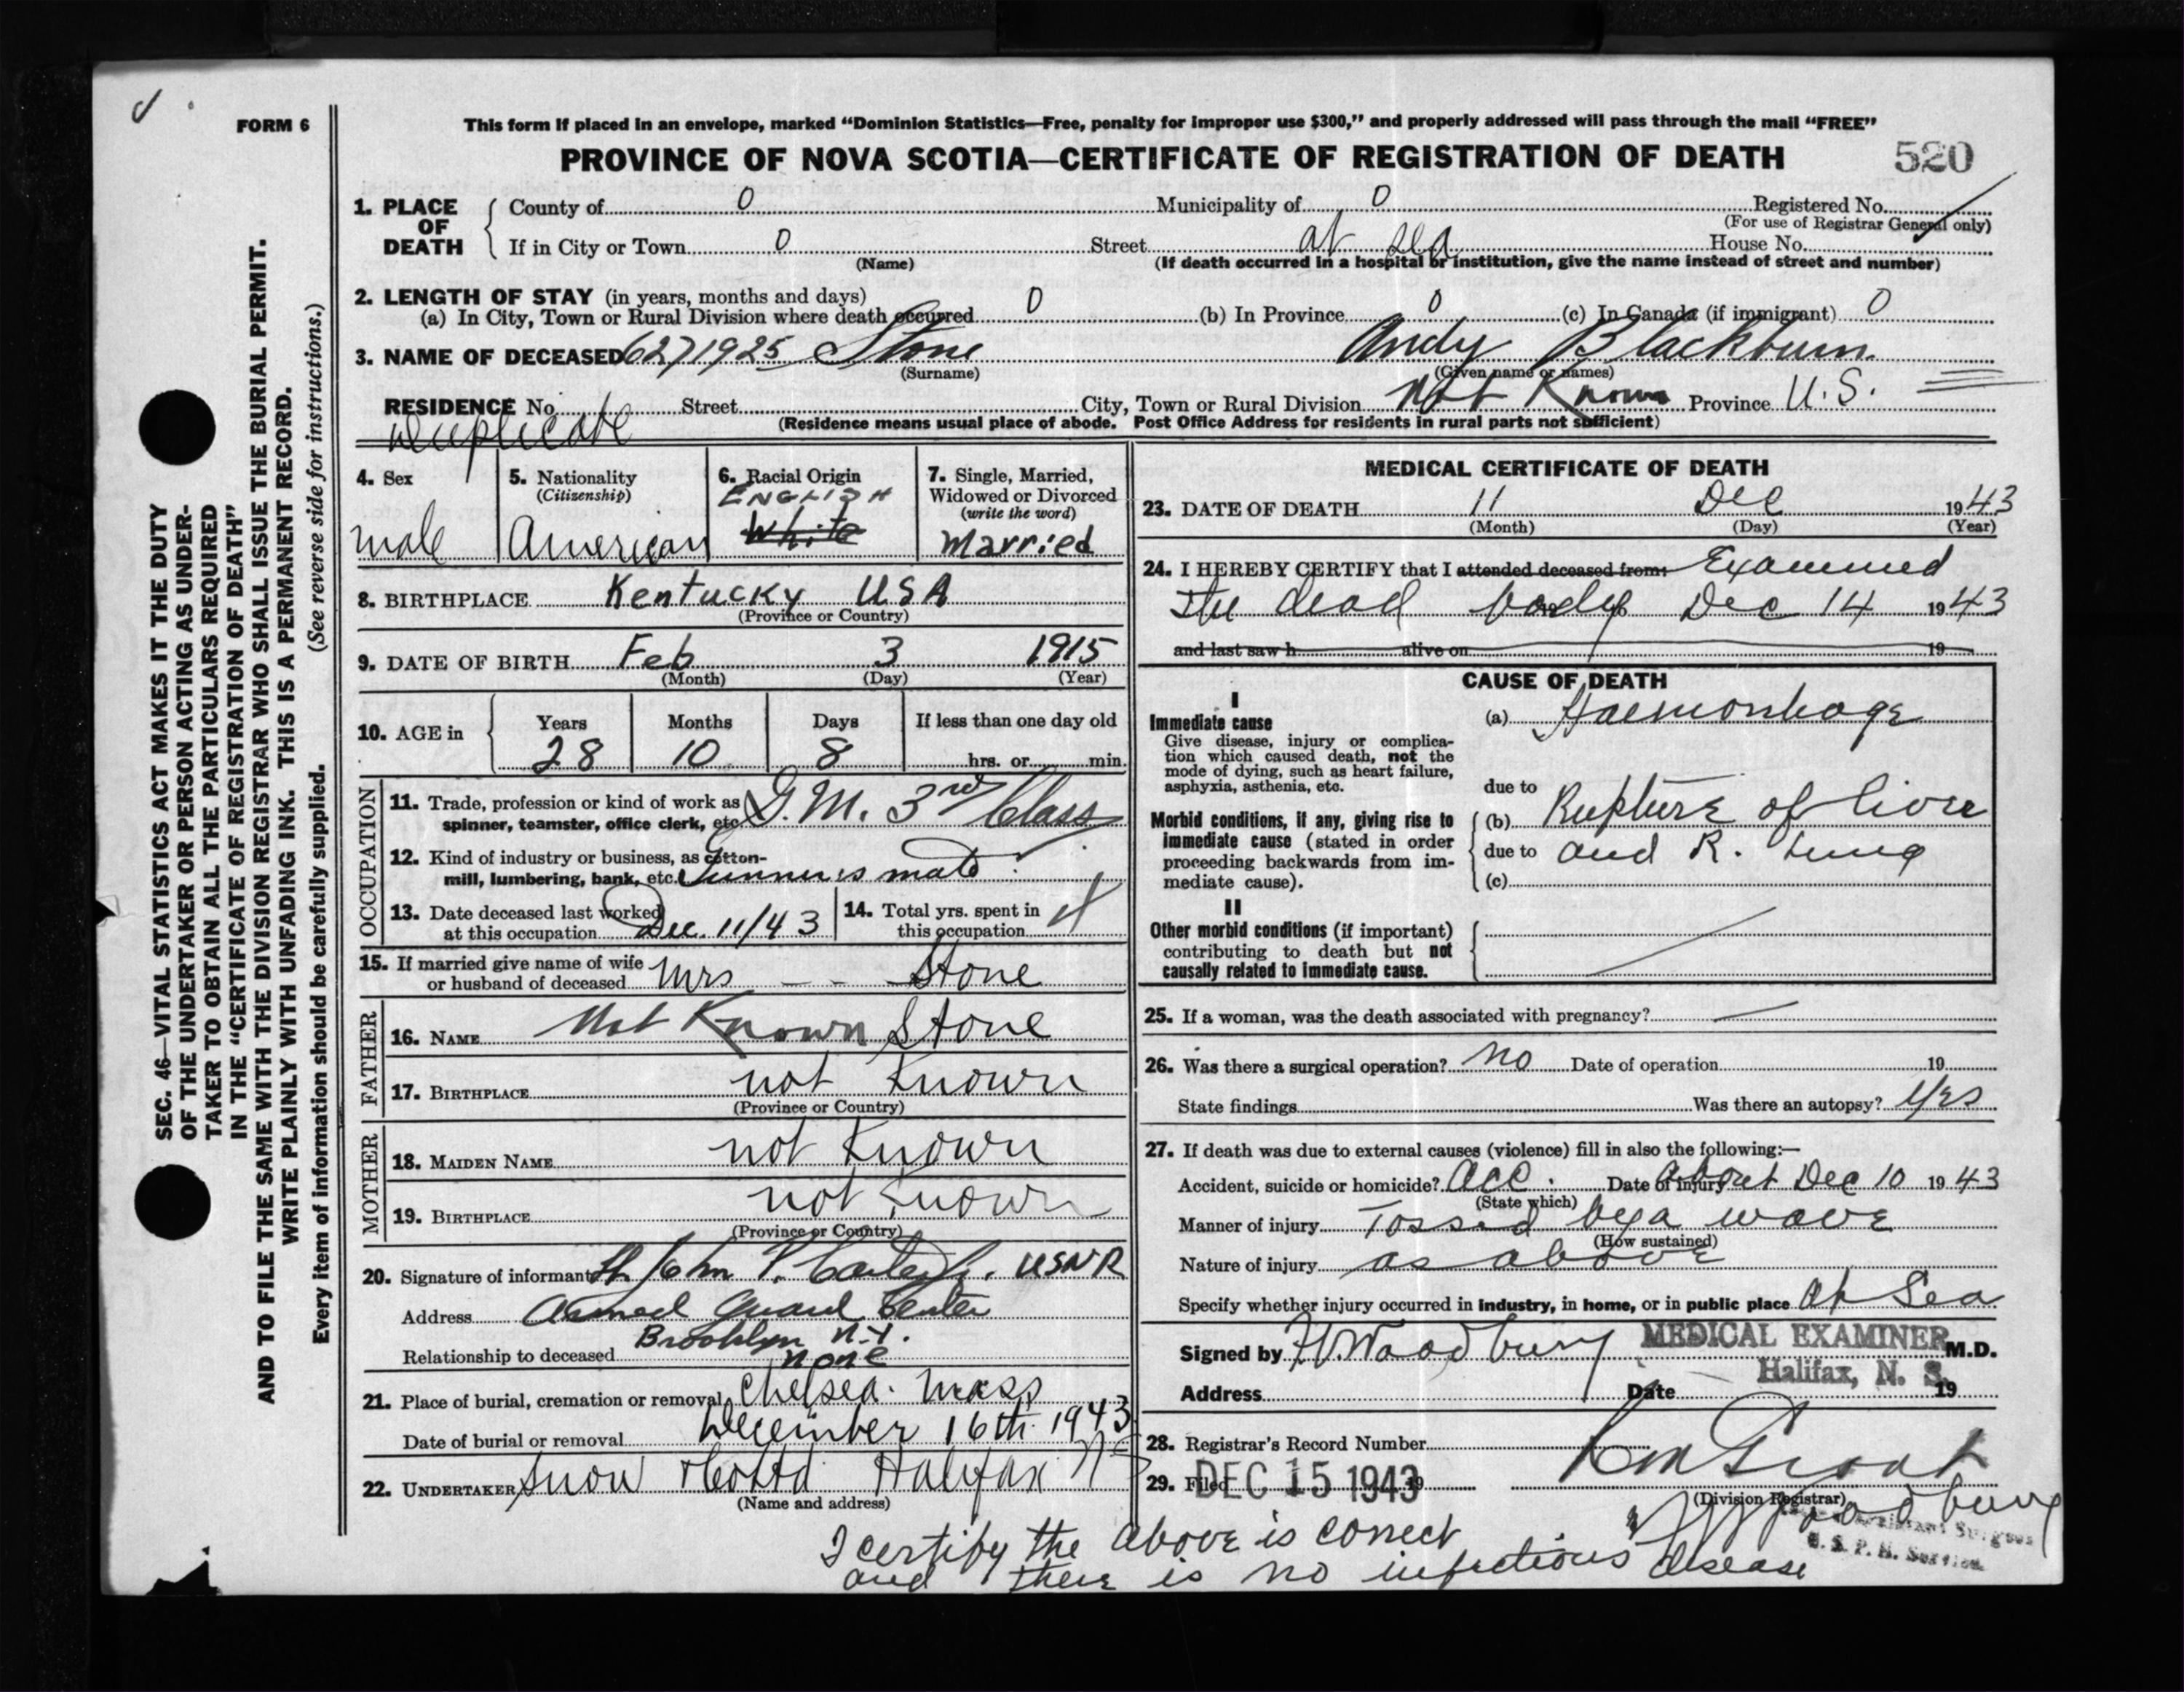 FORM 6
This form if placed in an envelope, marked “Dominion Statistics—Free, penalty for improper use $300,” and properly addressed will pass through the mail “FREE”
PROVINCE OF NOVA SCOTIA—CERTIFICATE OF REGISTRATION OF DEATH 520
SEC. 46—VITAL STATISTICS ACT MAKES IT THE DUTY
OF THE UNDERTAKER OR PERSON ACTING AS UNDER-
TAKER TO OBTAIN ALL THE PARTICULARS REQUIRED
IN THE “CERTIFICATE OF REGISTRATION OF DEATH”
AND TO FILE THE SAME WITH THE DIVISION REGISTRAR WHO SHALL ISSUE THE BURIAL PERMIT.
WRITE PLAINLY WITH UNFADING INK. THIS IS A PERMANENT RECORD.
Every item of information should be carefully supplied. (See reverse side for instructions.)
1. PLACE OF DEATH
County of 0 Municipality of 0 Registered No.
(For use of Registrar General only)
If in City or Town 0 Street at sea House No.
(Name) (If death occurred in a hospital or institution, give the name instead of street and number)
2. LENGTH OF STAY (in years, months and days)
(a) In City, Town or Rural Division where death occurred 0 (b) In Province 0 (c) In Canada (if immigrant) 0
3. NAME OF DECEASED 6271925 Stone Andy Blackburn
(Surname) (Given name or names)
RESIDENCE No. Street City, Town or Rural Division Not Known Province U.S.
Duplicate (Residence means usual place of abode. Post Office Address for residents in rural parts not sufficient)
4. Sex male
5. Nationality (Citizenship) American
6. Racial Origin ENGLISH White
7. Single, Married, Widowed or Divorced (write the word) Married
8. BIRTHPLACE Kentucky USA
(Province or Country)
9. DATE OF BIRTH Feb 3 1915
(Month) (Day) (Year)
10. AGE in Years Months Days If less than one day old
28 10 8 hrs. or min.
OCCUPATION
11. Trade, profession or kind of work as G.M. 3rd Class
spinner, teamster, office clerk, etc.
12. Kind of industry or business, as cotton-
mill, lumbering, bank, etc. Gunner's mate
13. Date deceased last worked
at this occupation Dec. 11/43
14. Total yrs. spent in
this occupation
15. If married give name of wife
or husband of deceased Mrs - - Stone
FATHER
16. NAME Not Known Stone
17. BIRTHPLACE not Known
(Province or Country)
MOTHER
18. MAIDEN NAME not Known
19. BIRTHPLACE not Known
(Province or Country)
20. Signature of informant Lt. John P. USNR
Address Armed Guard Center
Brooklyn N.Y.
Relationship to deceased none
21. Place of burial, cremation or removal Chelsea. Mass
Date of burial or removal December 16th 1943
22. UNDERTAKER Snow & Co Ltd Halifax NS
(Name and address)
MEDICAL CERTIFICATE OF DEATH
23. DATE OF DEATH 11 Dec 1943
(Month) (Day) (Year)
24. I HEREBY CERTIFY that I attended deceased from: Examined
the dead body 19 Dec 14 1943
and last saw h alive on 19
CAUSE OF DEATH
I
Immediate cause
Give disease, injury or complica-
tion which caused death, not the
mode of dying, such as heart failure,
asphyxia, asthenia, etc.
(a) Haemorrhage
due to
Morbid conditions, if any, giving rise to
immediate cause (stated in order
proceeding backwards from im-
mediate cause).
(b) Rupture of liver
due to and R. Lung
(c)
II
Other morbid conditions (if important)
contributing to death but not
causally related to immediate cause.
25. If a woman, was the death associated with pregnancy? —
26. Was there a surgical operation? No Date of operation 19
State findings Was there an autopsy? Yes
27. If death was due to external causes (violence) fill in also the following:—
Accident, suicide or homicide? Acc. Date of injury about Dec 10 1943
(State which)
Manner of injury Tossed by a wave
(How sustained)
Nature of injury as above
Specify whether injury occurred in industry, in home, or in public place At Sea
Signed by H. Woodbury MEDICAL EXAMINER M.D.
Halifax, N. S.
Address Date 19
28. Registrar's Record Number
29. Filed DEC 15 1943 19
(Division Registrar)
Woodbury
Assistant Surgeon
U. S. P. H. Service
I certify the above is correct
and there is no infectious disease